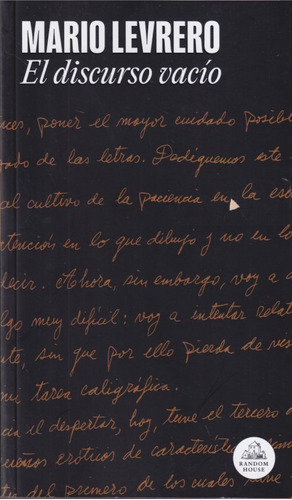 MARIO LEVRERO
El discurso vacío
nces, poner el mayor cuidado posibl
zado de las letras. Dediquemos este
al cultivo de la paciencia en la esc
atención en lo que dibujo y no en lo
decir. Ahora, sin embargo, voy a
lgo muy difícil: voy a intentar relat
te, sin que por ello pierda de ves
mi tarea caligráfica.
al despertar, hoy, tuve el tercero d
sueños eróticos de característic
del primero de los cuales tuve
RANDOM
HOUSE